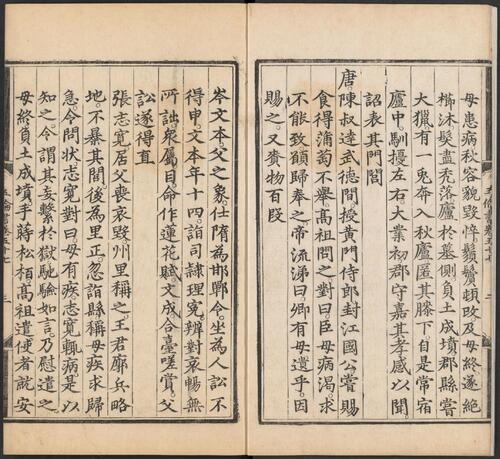 母患病秋容貌毀悴鬚鬢頓改及母終遂絶
櫛沐髮盡禿落廬於墓側負土成墳郡縣嘗
大獵有一兎奔入秋廬匿其膝下自是常宿
廬中馴擾左右大業初郡守嘉其孝感以聞
詔表其門閭
唐陳叔達武德間授黄門侍郎封江國公嘗賜
食得蒲萄不舉高祖問之對曰臣母病渴求
不能致願歸奉之帝流涕曰卿有母遺乎因
賜之又賚物百段
岑文本父之象仕隋為邯鄲令坐為人訟不
得申文本年十四詣司隷理寃辨對哀暢無
所詘衆屬目命作蓮花賦文成合臺嗟賞父
訟遂得直
張志寛居父喪哀毀州里稱之王君廓兵略
地不暴其閭後為里正忽詣縣稱母疾求歸
急令問狀志寛對曰母有疾志寛輒病是以
知之令謂其妄繫於獄馳驗如言乃慰遣之
母終負土成墳手蒔松栢高祖遣使者就安
五倫書卷五十七
三